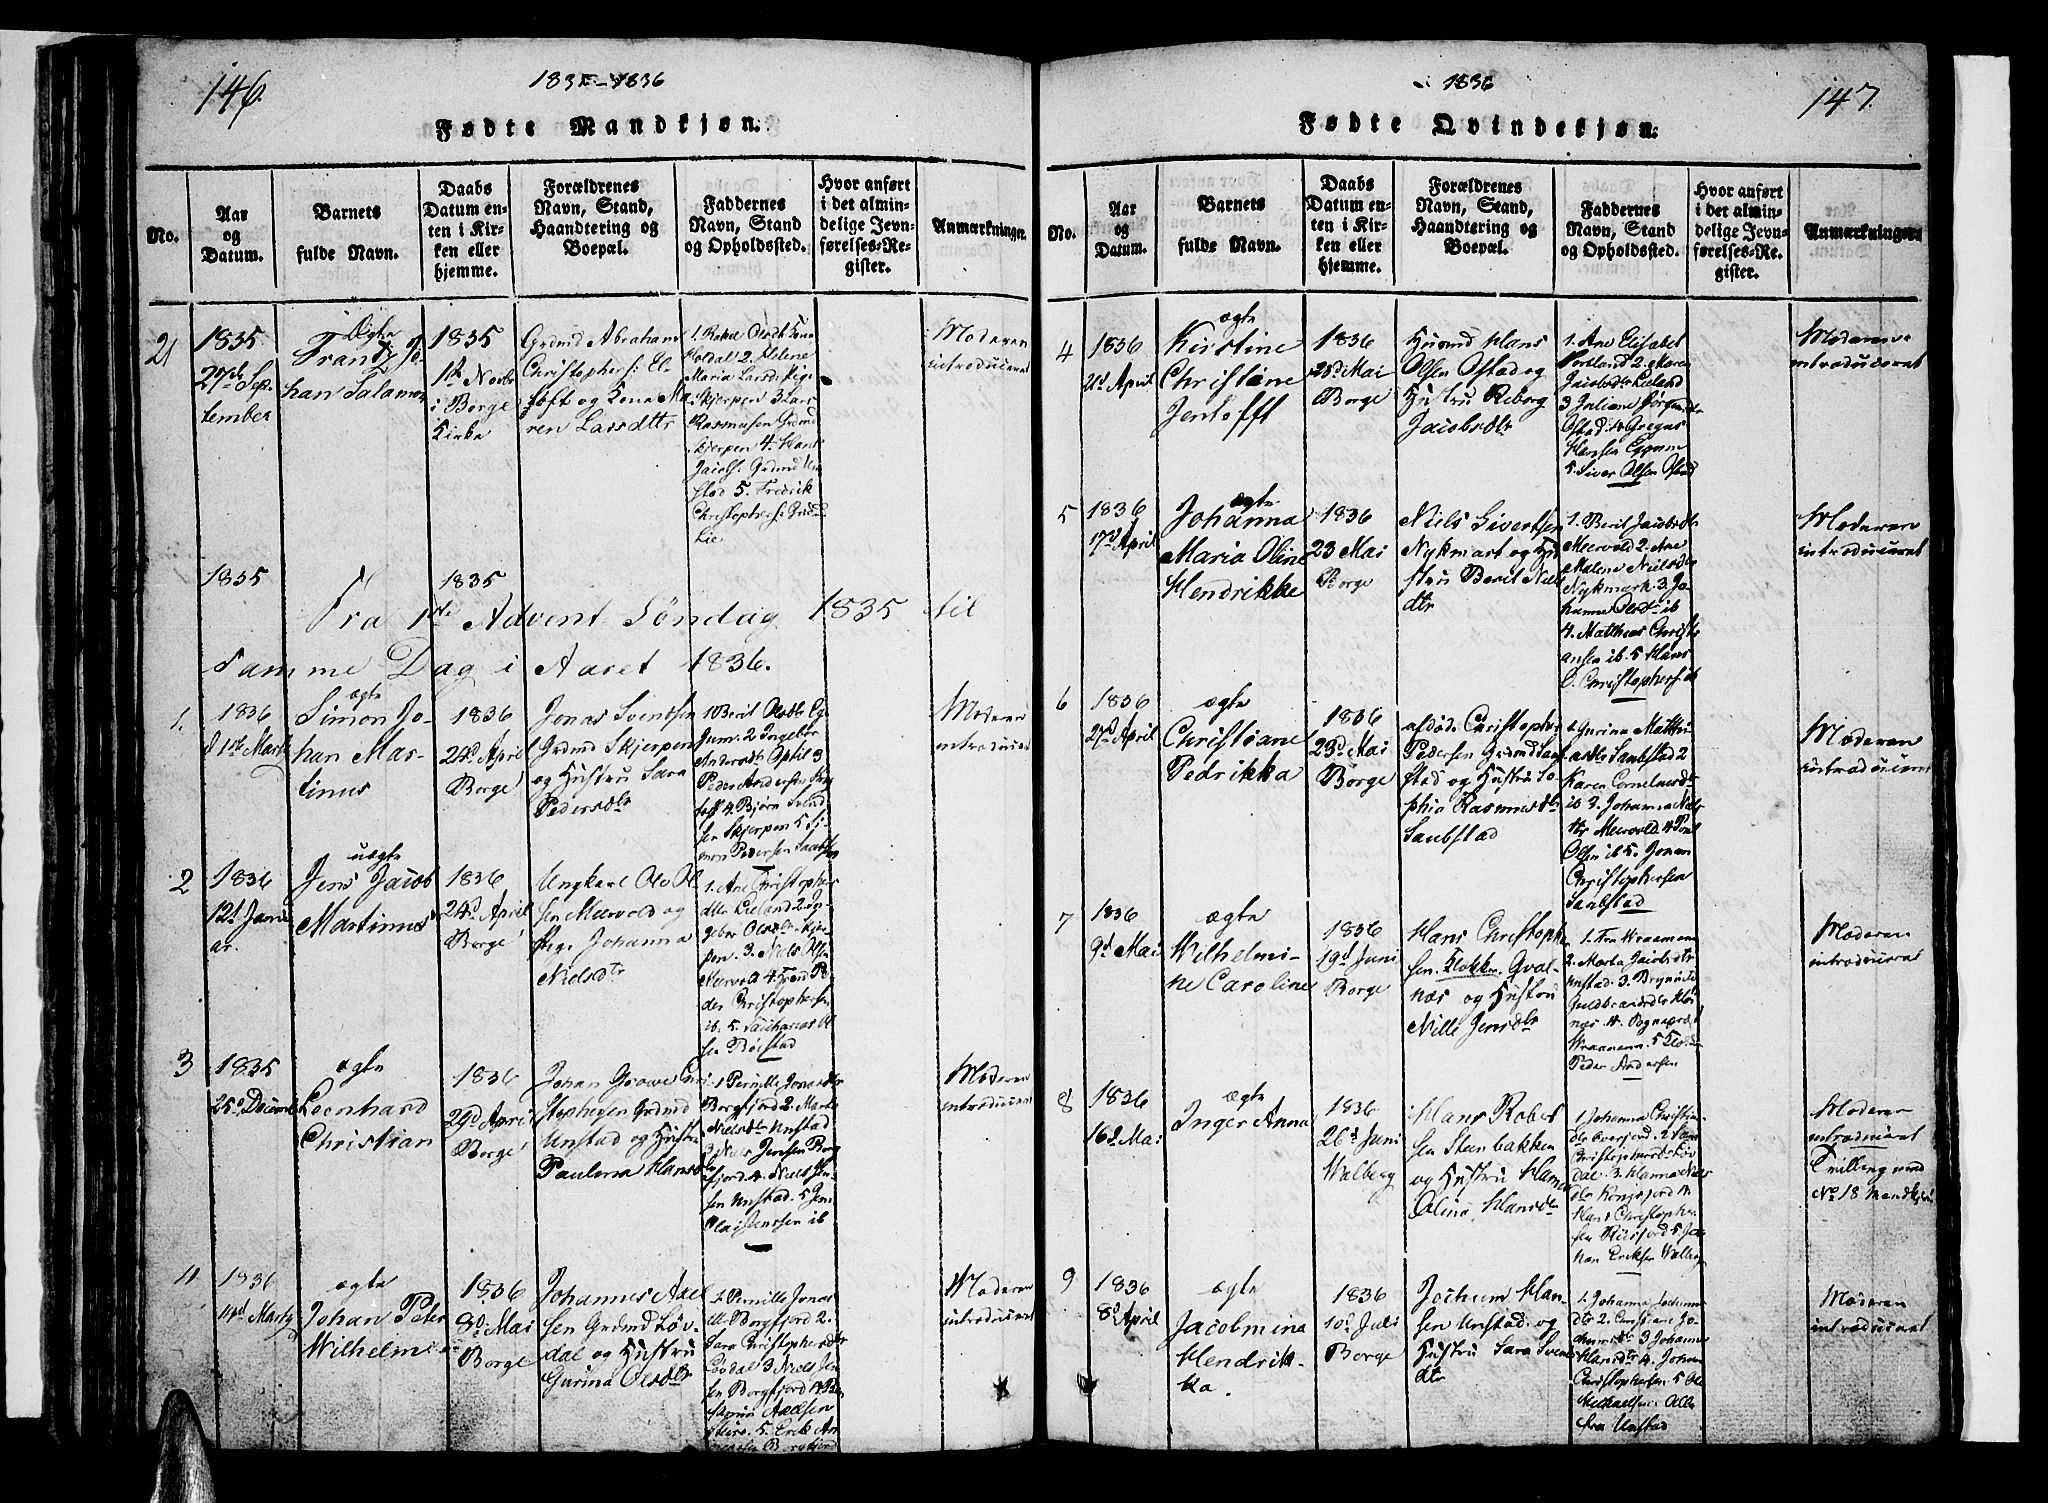 146.
1835-1836
Fødte Mandkjøn.
No.
Aar og Datum.
Barnets fulde Navn.
Daabs Datum enten i Kirken eller hjemme.
Forældrenes Navn, Stand, Haandtering og Boepæl.
Faddernes Navn, Stand og Opholdssted.
Hvor anført i det almindelige Jevnførelses-Register.
Anmærkninger.
21
1835
27de September
Ægte
Frantz Johan Salamon
1835
1ste Novbr
i Borge
Kirke
Grdmd Abraham
Christophers:
og Lena Ma-
ren Larsdttr
2. Helene
Maria Larsd:
Skjerpen 3 Lars
Rasmusen Grdmd
Skjerpen 4. Hans
Jacobs: Grdmd Un-
stad 5. Fredrik
Christophers:
Lie
Moderen
introduceret
1835
1835
Fra 1ste Advent Søndag 1835 til
samme Dag i Aaret 1836.
1.
1836
d 1ste Marts
ægte
Simon Jo-
han Mar-
tinus
1836
24d April
Borge
Jonas Svendsen
Grdmd Skjerpen
og Hustru Sara
Pedersdtr
1 Berit Olsdtr
2 Ingebor
Andersdtr Optil 3
Peder Andersen
4. Bjørn Svend-
sen Skjerpen 5 Si-
mon Pedersen
Moderen
introduceret
2
1836
12t Janu-
ar.
uægte
Jens Jacob
Martinus
1836
24d April
Borge
Ungkarl Ole Ol-
sen Meervold og
Pige Johanna
Nielsdtr
1. Ane Christophers-
dttr Lieland 2. In-
gebor Olsdtr Skjer-
pen. 3. Niels Olsen
Meervold 4
Christophersen
ib. 5. Zacharias Ol-
sen Bøestad
3
1835
25d Decemb
ægte
Leonhard
Christian
1836
29d April
Borge
Johan Growe Chri-
stophersen Grdmd
Unstad og Hustru
Paulena Hansdtr
1 Pernille Jonasdtr
Borgfjord 2. Marta
Nielsdtr Unstad
3 Jensen Borg-
fjord. 4. Niels Jen-
sen Unstad. 5. Jens
Olai Jenssen ib
Moderen
introduceret
4
1836
11d Marts
ægte
Johan Peter
Wilhelm
1836
8d Mai
Borge
Johannes Axel-
sen Grdmd Løv-
dal og Hustru
Gurina Olsdtr
1. Pernille Jonas-
dtr Borgfjord 2.
Sara Christophersdtr
3 Niels Jen-
sen Borgfjord 4.
Axelsen
5. Erik An-
Borgfjord
Moderen
introduceret
147.
1836
Fødte Qvindekjøn.
No.
Aar og Datum.
Barnets fulde Navn.
Daabs Datum enten i Kirken eller hjemme.
Forældrenes Navn, Stand, Haandtering og Boepæl.
Faddernes Navn, Stand og Opholdssted.
Hvor anført i det almindelige Jevnførelses-Register.
Anmærkninger.
4
1836
21d April
ægte
Kirstine
Christine
Jentofft
1836
23d Mai
Borge
Husmd Hans
Olsen Ostad og
Hustru Reborg
Jacobsdtr
1. Ane Elisabet
Portland 2. Maren
Jacobsdtr Lieland
3 Juliane Jørgensdtr
Ostad 4. Gregus
Hansen Eggum
5. Siver Olsen Ostad
Moderen
introduceret
5
1836
17d April
ægte
Johanna
Maria Oline
Hendrikke
1836
23 Mai
Borge
Niels Sivertsen
Nykmark og Hu-
stru Berit Niels-
dtr
1. Berit Jacobsdtr
Meervold 2. Ane
Malene Nielsdtr
Nykmark. 3. Jo-
hanne Olsdtr ib
4. Matthias Christi-
ansen ib. 5 Hans
O. Christophers: ib
Moderen
introduceret
6
1836
27d April
ægte
Christiane
Pedrikka
1836
23d Mai
Borge
afdøde Christopher
Pedersen Grdmd Sand-
stad og Hustru So-
phia Rasmusdtr
Sandstad
1. Gurina Matthi-
asdtr Sandstad 2
Karen Cornelius dtr
ib 3. Johanna Niels-
dtr Meervold. 4 Poul
Olsen ib 5. Jonan
Christophersen
Sandstad
Moderen
introduceret
7
1836
9d Mai
ægte
Wilhelmi-
ne Caroline
1836
19d Juni
Borge
Hans Christoph-
sen. Klokker. Qval-
næs og Hustru
Nille Jensdtr
1. Fru Wraamann
2. Marta Jacobsdtr
Unstad. 3.
Guldbrandsdtr
næs 4. Sognepræst
Wraamann. 5
Peder Andersen
Moderen
introduceret
8
1836
16d Mai
ægte
Inger Anna
1836
26d Juni
Walberg
Hans Robert-
sen Steenbakken
og Hustru Hanna
Olina Hansdtr
1 Johanna Christian-
dtr 2 Sara
Christophersdtr Løv-
dal. 3. Hanna Niels-
dtr Kongsjord 4
Hans Christopher-
sen 5 Jo-
han Eriksen Walberg
Moderen
introduceret
Tvilling med
No 18 Mandkjøn
9
1836
8d April
ægte
Jacobmina
Hendrik-
ka.
1836
10d Juli
Borge
Jochum Han-
sen Unstad. og
Hustru Sara Svends-
dtr
1. Johanna Jochums-
dtr 2. Christiane Jo-
chumsdtr 3 Johanna
Hansdtr 4. Johan
Christophersen 5 Ole
Michaelsen. Alle
fra Unstad
Moderen
introduceret